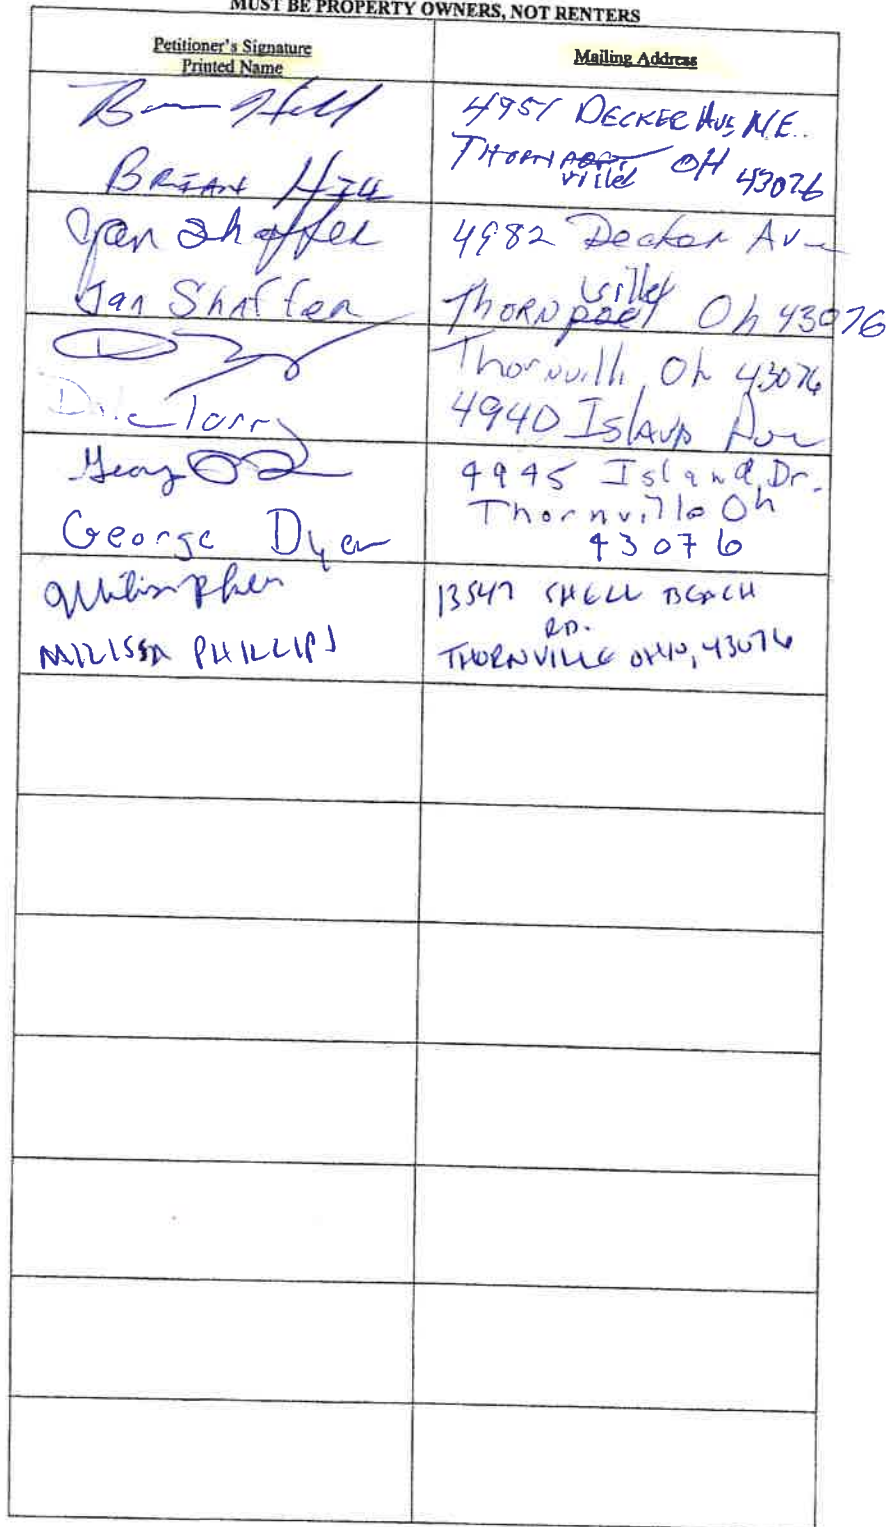 MUST BE PROPERTY OWNERS, NOT RENTERS
Petitioner's Signature
Printed Name
Mailing Address
BRIAN HILL
4951 DECKER AVE, N.E.
THORNPORT OH 43076
ville
Jan Shaffer
Jan Shaffer
4982 Decker Ave
ville
THORNport Oh 43076
Thornville, Oh 43076
4940 Island Ave
George Dyer
4945 Island Dr.
Thornville Oh
43076
MILISSA PHILLIPS
13547 SHELL BEACH
RD.
THORNVILLE OHIO, 43076